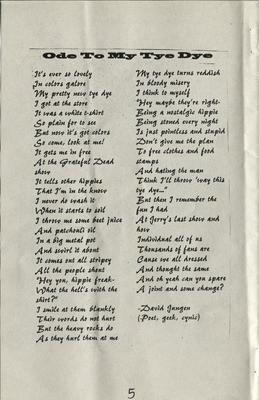 Ode To My Tye Dye
It's ever so lovely
In colors galore
My pretty new tye dye
I got at the store
It was a white t-shirt
So plain for to see
But now it's got colors
So come, look at me!
It gets me in free
At the Grateful Dead
show
It tells other hippies
That I'm in the know
I never do wash it
When it starts to soil
I throw me some beet juice
And patchouli oil
In a big metal pot
And swirl it about
It comes out all stripey
All the people shout
"Hey you, hippie freak-
What the hell's with the
shirt?"
I smile at them blankly
Their words do not hurt
But the heavy rocks do
As they hurl them at me
My tye dye turns reddish
In bloody misery
I think to myself
"Hey maybe they're right-
Being a nostalgic hippie
Being stoned every night
Is just pointless and stupid
Don't give me the plan
To free clothes and food
stamps
And hating the man
Think I'll throw 'way this
tye dye..."
But then I remember the
fun I had
At Jerry's last show and
how
Individual all of us
Thousands of fans are
Cause we all dressed
And thought the same
And oh yeah can you spare
A joint and some change?
-David Jungen
(Poet, geek, cynic)
5